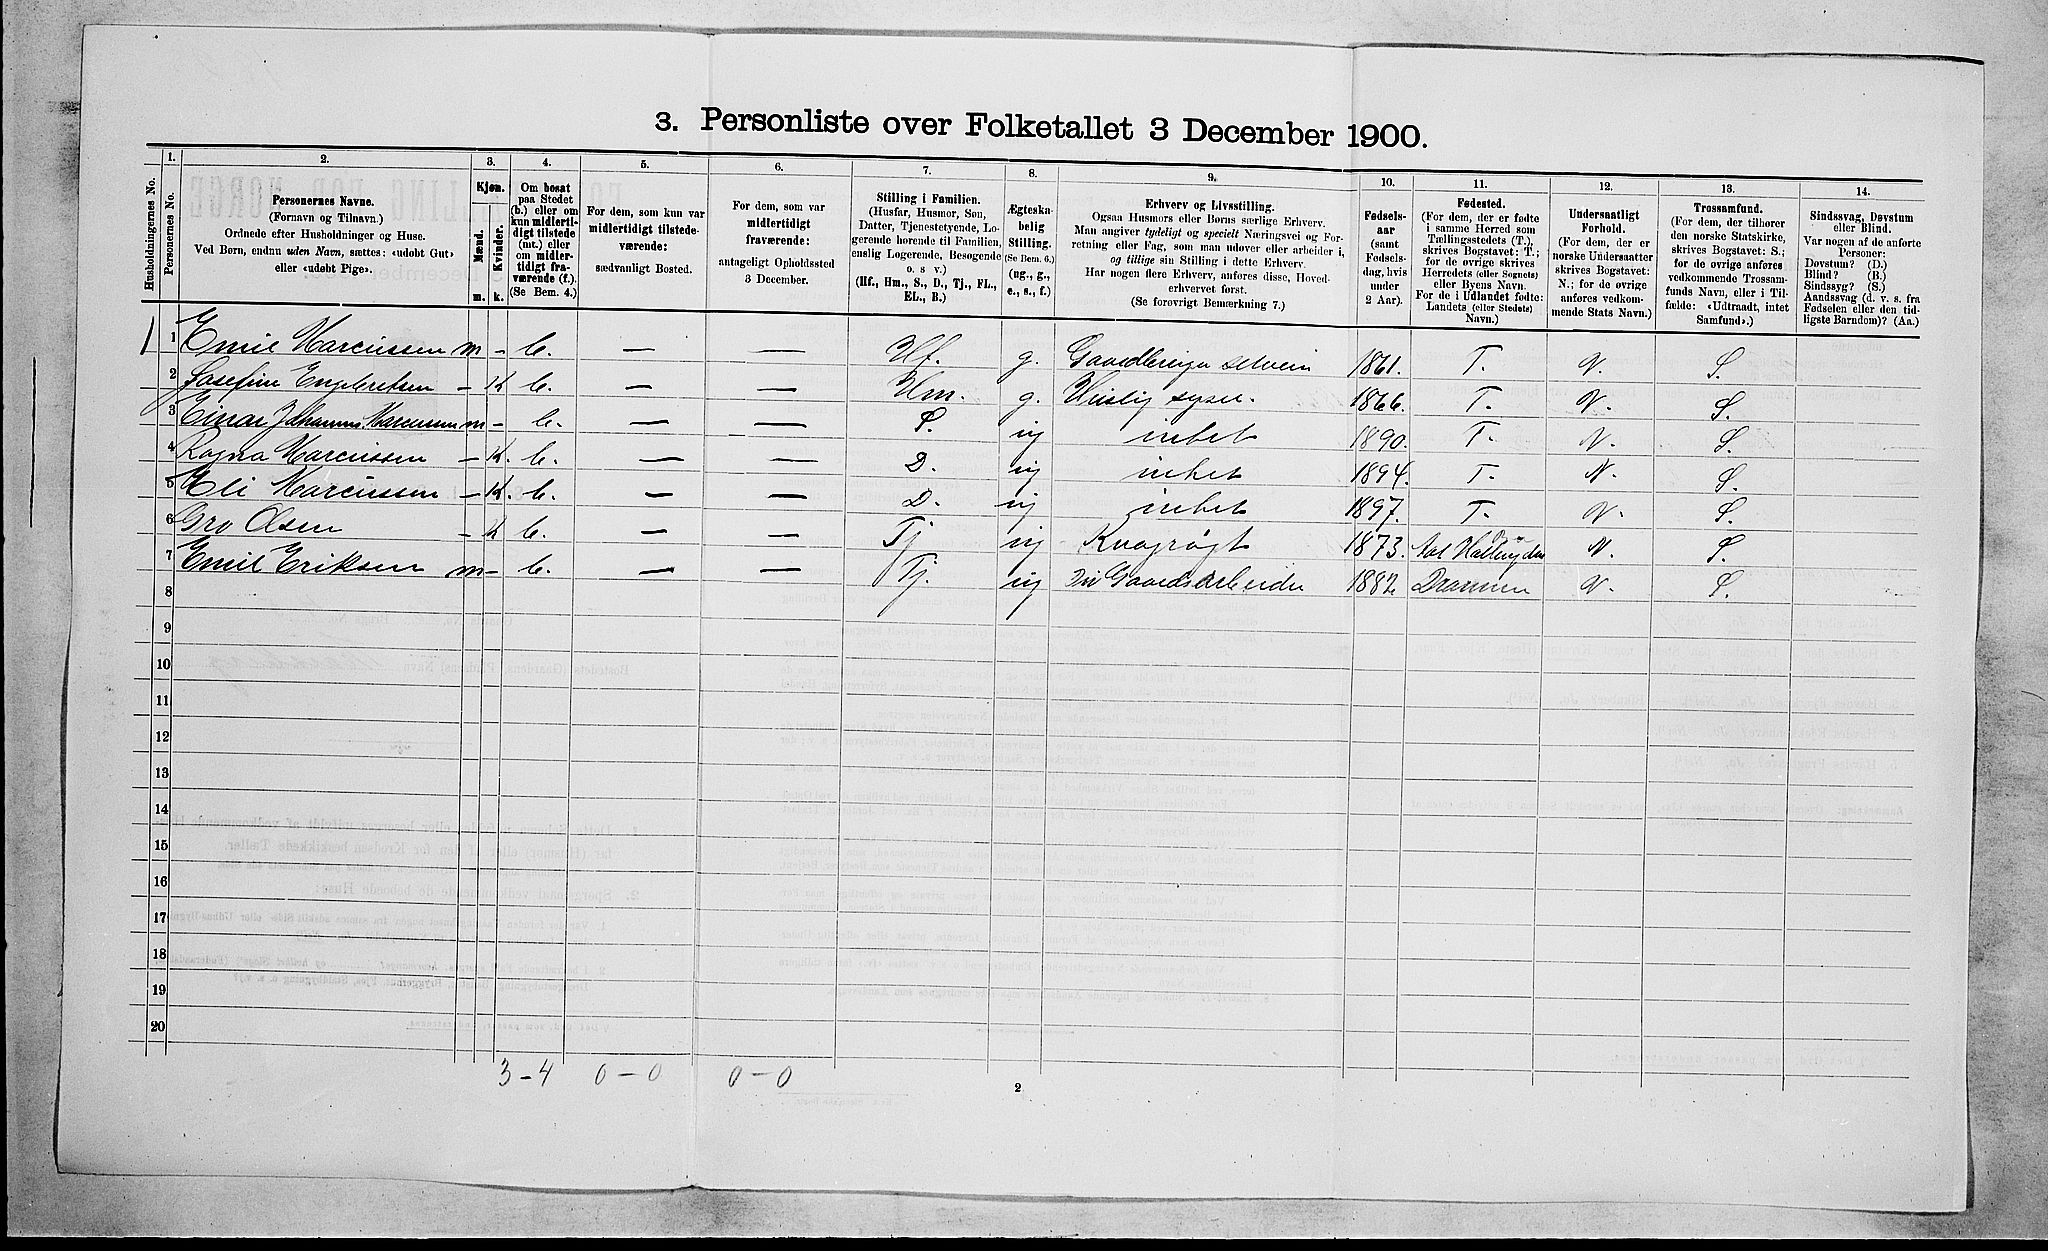 3. Personliste over Folketallet 3 December 1900.
Husholdningernes No.
1.
Personernes No.
2.
Personernes Navne.
(Fornavn og Tilnavn.)
Ordnede efter Husholdninger og Huse.
Ved Børn, endnu uden Navn, sættes: «udøbt Gut»
eller «udøbt Pige».
3.
Kjøn.
Mænd.
Kvinder.
m. k.
4.
Om bosat
paa Stedet
(b.) eller om
kun midlerti-
digt tilstede
(mt.) eller
om midler-
tidigt fra-
værende (f.).
(Se Bem. 4.)
5.
For dem, som kun var
midlertidigt tilstede-
værende:
sædvanligt Bosted.
6.
For dem, som var
midlertidigt
fraværende:
antageligt Opholdssted
3 December.
7.
Stilling i Familien.
(Husfar, Husmor, Søn,
Datter, Tjenestetyende, Lo-
gerende hørende til Familien,
enslig Logerende, Besøgende
o. s v.)
(Hf., Hm., S., D., Tj., FL.,
EL., B.)
8.
Ægteska-
belig
Stilling.
(Se Bem. 6.)
(ug., g.,
e., s., f.)
9.
Erhverv og Livsstilling.
Ogsaa Husmors eller Børns særlige Erhverv.
Man angiver tydeligt og specielt Næringsvei og For-
retning eller Fag, som man udøver eller arbeider i,
og tillige sin Stilling i dette Erhverv.
Har nogen flere Erhverv, anføres disse, Hoved-
erhvervet først.
(Se forøvrigt Bemærkning 7.)
10.
Fødsels-
aar
(samt
Fødsels-
dag, hvis
under
2 Aar).
11.
Fødested.
(For dem, der er fødte
i samme Herred som
Tællingsstedets (T.),
skrives Bogstavet: T.;
for de øvrige skrives
Herredets (eller Sognets)
eller Byens Navn.
For de i Udlandet fødte:
Landets (eller Stedets)
Navn.)
12.
Undersaatligt
Forhold.
(For dem, der er
norske Undersaatter
skrives Bogstavet:
N.; for de øvrige
anføres vedkom-
mende Stats Navn.)
13.
Trossamfund.
(For dem, der tilhører
den norske Statskirke,
skrives Bogstavet: S.;
for de øvrige anføres
vedkommende Trossam-
funds Navn, eller i Til-
fælde: «Udtraadt, intet
Samfund».)
14.
Sindssvag, Døvstum
eller Blind.
Var nogen af de anførte
Personer:
Døvstum? (D.)
Blind? (B.)
Sindssyg? (S.)
Aandssvag (d. v. s. fra
Fødselen eller den tid-
ligste Barndom)? (Aa.)
1 1 Emil Marcussen m - b. — — Hf. g. Gaardbruger selveier 1861. T. N. S.
2 Josefine Engebretsen - K b. — — Hm. g. Huslig syssel. 1866. T. N. S.
3 Einar Johannes Marcussen m - b. — — S. ug intet 1890. T. N. S.
4 Ragna Marcussen - K. b. — — D. ug intet 1894. T. N. S.
5 Eli Marcussen - K. b. — — D. ug intet 1897. T. N. S.
6 Gro Olsen - K b. — — Tj ug Kvægrøgt 1873. N. S.
7 Emil Eriksen m - b. — — Tj. ug Gaardsarbeider 1882 Drammen N. S.
8
9
10
11
12
13
14
15
16
17
18
19
20
3 - 4 0 - 0 0 - 0
2